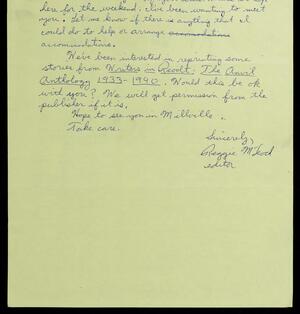 here for the weekend. I've been wanting to meet
you. Let me know if there is anything that I
could do to help or arrange accomodations
accomodations.
We've been interested in reprinting some
stories from Writers in Revolt: The Anvil
Anthology 1933-1940. Would this be ok
with you? We will get permission from the
publisher if it is.
Hope to see you in Millville.
Take care.
Sincerely,
Reggie McLeod
editor